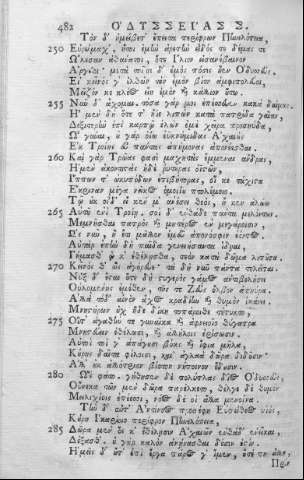 482 ὈΔΥΣΣΕΊΑΣ Σ.
Τὸν δ' ἠμείβετ' ἔπειτα περίφρων Πηνελόπεια,
250 Εὐρύμαχ', ἤτοι ἐμὴν ἀρετὴν εἶδός τε δέμας τε
Ὤλεσαν ἀθάνατοι, ὅτε Ἴλιον εἰσανέβαινον
Ἀργεῖοι, μετὰ τοῖσι δ' ἐμὸς πόσις ᾖεν Ὀδυσσεύς.
Εἰ κεῖνός γ' ἐλθὼν τὸν ἐμὸν βίον ἀμφιπολεύοι,
Μεῖζόν κε κλέος εἴη ἐμὸν καὶ κάλλιον οὕτω.
255 Νῦν δ' ἄχομαι· τόσα γάρ μοι ἐπέσσευεν κακὰ δαίμων.
Ἦ μὲν δὴ ὅτε τ' ᾖε λιπὼν κατὰ πατρίδα γαῖαν,
Δεξιτερὴν ἐπὶ καρπῷ ἑλὼν ἐμὲ χεῖρα προσηύδα·
Ὦ γύναι, οὐ γὰρ ὀΐω ἐϋκνήμιδας Ἀχαιοὺς
Ἐκ Τροίης εὖ πάντας ἀπήμονας ἀπονέεσθαι.
260 Καὶ γὰρ Τρῶάς φασι μαχητὰς ἔμμεναι ἄνδρας,
Ἠμὲν ἀκοντιστὰς ἠδὲ ῥυτῆρας ὀϊστῶν,
Ἵππων τ' ὠκυπόδων ἐπιβήτορας, οἵ κε τάχιστα
Ἔκριναν μέγα νεῖκος ὁμοιΐου πτολέμοιο.
Τῷ οὐκ οἶδ' εἴ κέν μ' ἀνέσει θεὸς, ἤ κεν ἁλώω
265 Αὐτοῦ ἐνὶ Τροίῃ, σοὶ δ' ἐνθάδε πάντα μελόντων.
Μεμνῆσθαι πατρὸς καὶ μητέρος ἐν μεγάροισιν,
Ὡς νῦν, ἢ ἔτι μᾶλλον ἐμεῦ ἀπονόσφιν ἐόντος.
Αὐτὰρ ἐπὴν δὴ παῖδα γενειήσαντα ἴδηαι,
Γήμασθ' ᾧ κ' ἐθέλησθα, τεὸν κατὰ δῶμα λιποῦσα.
270 Κεῖνος τ' ὣς ἀγόρευε· τὰ δὴ νῦν πάντα τελεῖται.
Νὺξ δ' ἔσται ὅτε δὴ στυγερὸς γάμος ἀντιβολήσει
Οὐλομένης ἐμέθεν, τῆς τε Ζεὺς ὄλβον ἀπηύρα.
Ἀλλὰ τόδ' αἰνὸν ἄχος κραδίην καὶ θυμὸν ἱκάνει.
Μνηστήρων οὐχ ἥδε δίκη τοπάροιθε τέτυκτο,
275 Οἵτ' ἀγαθήν τε γυναῖκα καὶ ἀφνειοῖο θύγατρα
Μνηστεύειν ἐθέλωσι, καὶ ἀλλήλοις ἐρίσωσιν.
Αὐτοὶ τοί γ' ἀπάγουσι βόας καὶ ἴφια μῆλα,
Κούρης δαῖτα φίλοισι, καὶ ἀγλαὰ δῶρα διδοῦσιν·
Ἀλλ' οὐκ ἀλλότριον βίοτον νήποινον ἔδουσιν.
280 Ὣς φάτο. γήθησεν δὲ πολύτλας δῖος Ὀδυσσεὺς,
Οὕνεκα τῶν μὲν δῶρα παρέλκετο, θέλγε δὲ θυμὸν
Μειλιχίοις ἐπέεσσι, νόος δέ οἱ ἄλλα μενοίνα.
Τὴν δ' αὖτ' Ἀντίνοος προσέφη Εὐπείθεος υἱὸς,
Κούρη Ἰκαρίοιο περίφρων Πηνελόπεια,
285 Δῶρα μὲν ὅς κ' ἐθέλησιν Ἀχαιῶν ἐνθάδ' ἐνεῖκαι,
Δέξασθ'. οὐ γὰρ καλὸν ἀνήνασθαι δόσιν ἐστίν.
Ἡμεῖς δ' οὔτ' ἐπὶ ἔργα πάρος γ' ἴμεν, οὔτε πη ἄλλη,
Πρίν